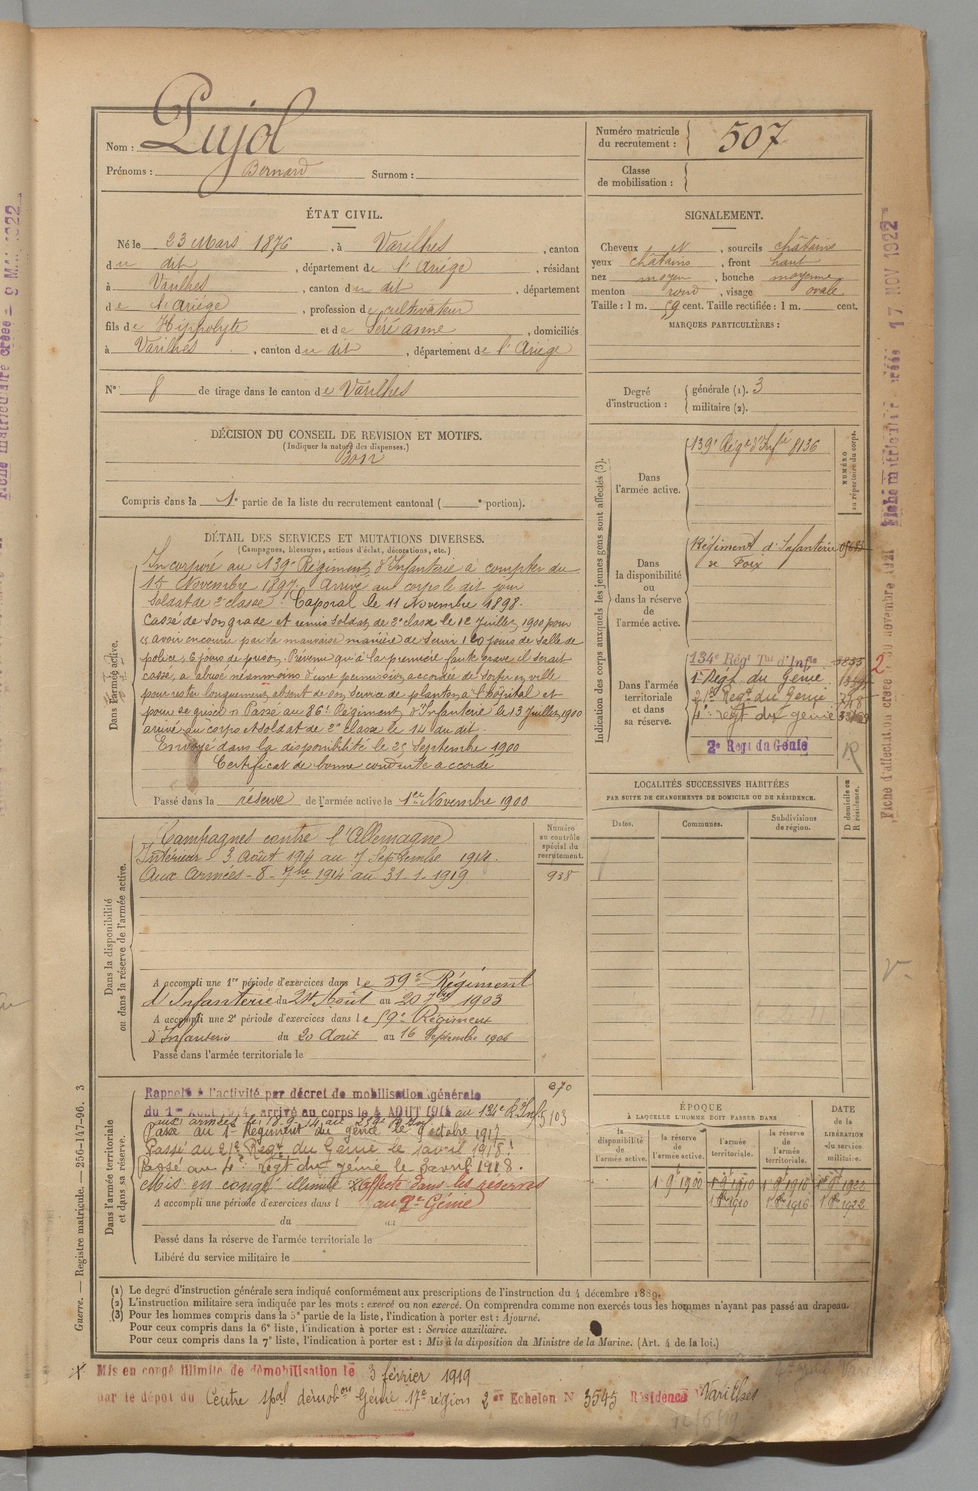 Nom : Pujol
Prénoms : Bernard Surnom :
Numéro matricule du recrutement : 507
Classe de mobilisation :
ÉTAT CIVIL.
Né le 23 Mars 1876, à Varilhes, canton
du dit, département de l'Ariège, résidant
à Varilhes, canton du dit, département
de l'Ariège, profession de cultivateur
fils de Hippolyte et de Séré Anne, domiciliés
à Varilhes, canton du dit, département de l'Ariège
N° 8 de tirage dans le canton de Varilhes
SIGNALEMENT.
Cheveux et, sourcils châtains
yeux châtains, front haut
nez moyen, bouche moyenne
menton rond, visage ovale
Taille : 1 m. 59 cent. Taille rectifiée : 1 m. cent.
MARQUES PARTICULIÈRES :
Degré d'instruction : générale (1). 3
militaire (2).
DÉCISION DU CONSEIL DE REVISION ET MOTIFS.
(Indiquer la nature des dispenses.)
Bon
Compris dans la 1e partie de la liste du recrutement cantonal ( e portion).
DÉTAIL DES SERVICES ET MUTATIONS DIVERSES.
(Campagnes, blessures, actions d'éclat, décorations, etc.)
Dans l'armée active.
Incorporé au 139e Régiment d'Infanterie à compter du
15 Novembre 1897. Arrivé au corps le dit jour
Soldat de 2e classe. Caporal le 11 Novembre 1898.
Cassé de son grade et remis soldat de 2e classe le 12 Juillet 1900 pour
"avoir encouru par sa mauvaise manière de servir 120 jours de salle de
police & 6 jours de prison. Prévenu qu'à la première faute grave il serait
cassé, a abusé néanmoins d'une permission accordée de sortir en ville
pour rester longuement absent de son service de planton à l'hôpital et
pour se griser" Passé au 86e Régiment d'Infanterie le 13 Juillet 1900
arrivé au corps et soldat de 2e classe le 14 du dit.
Envoyé dans la disponibilité le 25 Septembre 1900
Certificat de bonne conduite accordé
Passé dans la réserve de l'armée active le 1er Novembre 1900
Indication des corps auxquels les jeunes gens sont affectés (3).
NUMÉRO au répertoire du corps.
Dans l'armée active.
139e Régt d'Infie 8136
Dans la disponibilité ou dans la réserve de l'armée active.
Régiment d'Infanterie
de Foix
Dans l'armée territoriale et dans sa réserve.
134e Rég Tal d'Infie
1er Régt du Génie
21e Régt du Génie
4e régt du génie
2e Régt du Génie
LOCALITÉS SUCCESSIVES HABITÉES
PAR SUITE DE CHANGEMENTS DE DOMICILE OU DE RÉSIDENCE.
Dates. Communes. Subdivisions de région. D domicile ou R résidence.
Dans la disponibilité ou dans la réserve de l'armée active.
Numéro au contrôle spécial du recrutement.
938
Campagnes contre l'Allemagne
Intérieur - 3 Août 1914 au 7 Septembre 1914.
Aux Armées - 8 - 7bre 1914 au 31-1-1919
A accompli une 1re période d'exercices dans le 59e Régiment
d'Infanterie du 24 Août au 20 7bre 1903
A accompli une 2e période d'exercices dans le 59e Régiment
d'Infanterie du 20 Août au 16 Septembre 1906
Passé dans l'armée territoriale le
Dans l'armée territoriale et dans sa réserve.
Rappelé à l'activité par décret de mobilisation générale
du 1er AOUT 1914, arrivé au corps le 4 AOUT 1914 au 134e R.T.Inf
Passé au 1er Régiment du génie le 9 octobre 1917
Passé au 21e Régt du Génie le 1 avril 1918
Passé au 4e régt du génie le 6 avril 1918.
Mis en congé illimité Affecté dans les réserves
au 2e Génie
A accompli une période d'exercices dans l
du au
Passé dans la réserve de l'armée territoriale le
Libéré du service militaire le
ÉPOQUE
À LAQUELLE L'HOMME DOIT PASSER DANS
la disponibilité de l'armée active. la réserve de l'armée active. l'armée territoriale. la réserve de l'armée territoriale.
DATE de la LIBÉRATION du service militaire.
1 9bre 1900 1 9bre 1910 1 9bre 1916 1 9bre 1922
1 8bre 1910 1 8bre 1916 1 8bre 1922
(1) Le degré d'instruction générale sera indiqué conformément aux prescriptions de l'instruction du 4 décembre 1889.
(2) L'instruction militaire sera indiquée par les mots : exercé ou non exercé. On comprendra comme non exercés tous les hommes n'ayant pas passé au drapeau.
(3) Pour les hommes compris dans la 5e partie de la liste, l'indication à porter est : Ajourné.
Pour ceux compris dans la 6e liste, l'indication à porter est : Service auxiliaire.
Pour ceux compris dans la 7e liste, l'indication à porter est : Mis à la disposition du Ministre de la Marine. (Art. 4 de la loi.)
Mis en congé illimité de démobilisation le 3 février 1919
par le dépôt du Centre spal démobon Génie 17e région 2er Echelon N° 3545 Résidence Varilhes
Guerre. — Registre matricule. — 256-147-96. 3
Fiche matriculaire créée — 9 MAI 1922
Fiche matriculaire créée 17 NOV 1922